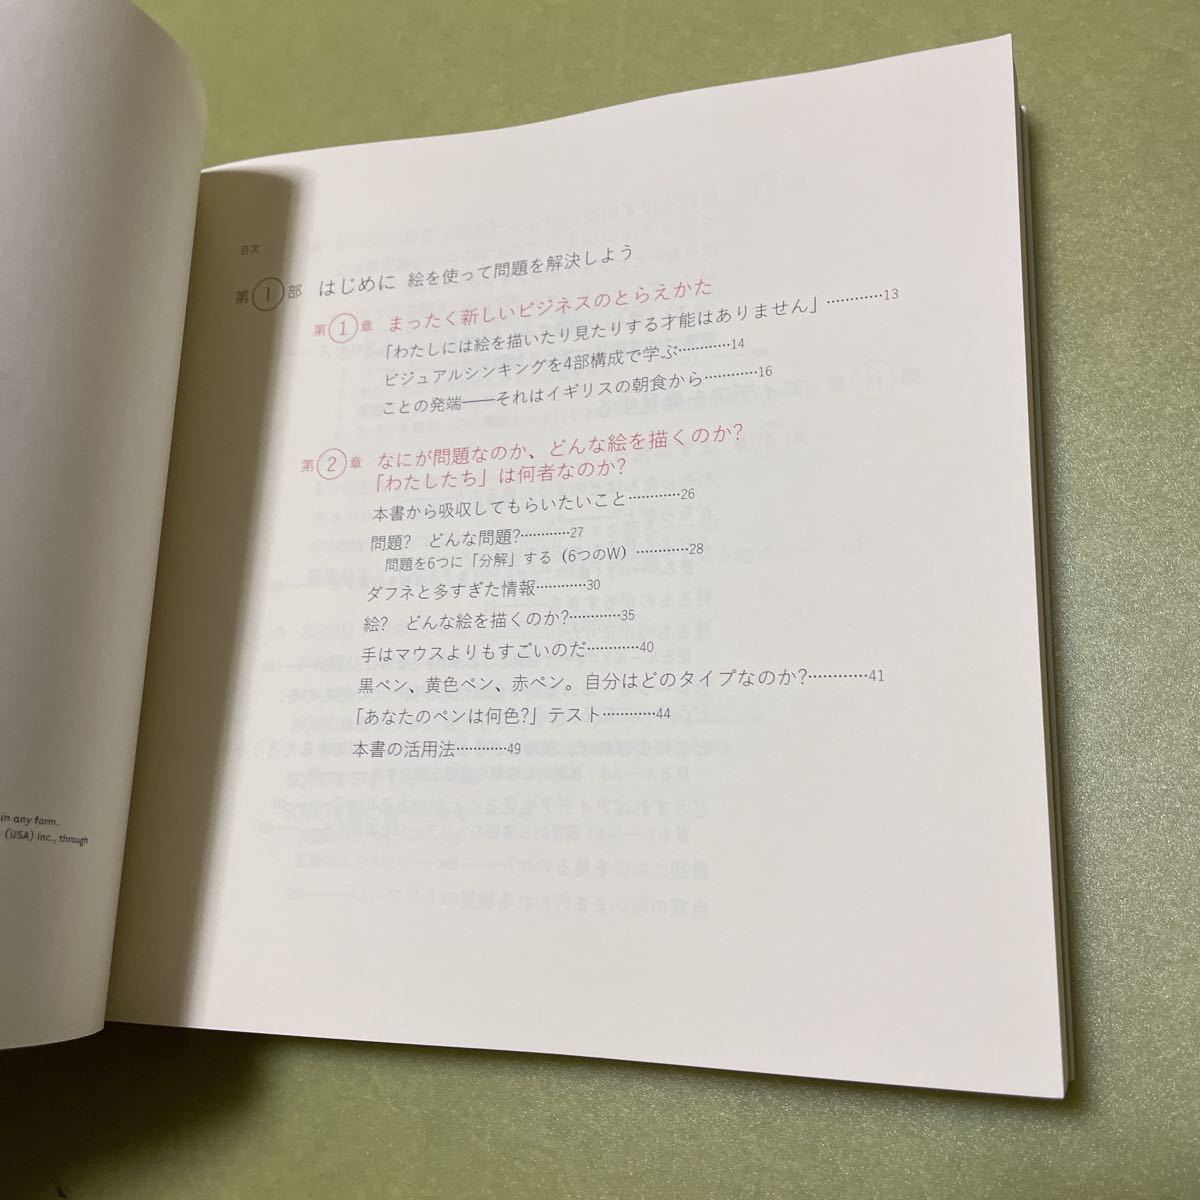 in any form.
(USA) Inc., through
目次
第1部 はじめに 絵を使って問題を解決しよう
第1章 まったく新しいビジネスのとらえかた
「わたしには絵を描いたり見たりする才能はありません」…………13
ビジュアルシンキングを4部構成で学ぶ…………14
ことの発端——それはイギリスの朝食から…………16
第2章 なにが問題なのか、どんな絵を描くのか?
「わたしたち」は何者なのか?
本書から吸収してもらいたいこと…………26
問題? どんな問題?…………27
問題を6つに「分解」する(6つのW)…………28
ダフネと多すぎた情報…………30
絵? どんな絵を描くのか?…………35
手はマウスよりもすごいのだ…………40
黒ペン、黄色ペン、赤ペン。自分はどのタイプなのか?…………41
「あなたのペンは何色?」テスト…………44
本書の活用法…………49